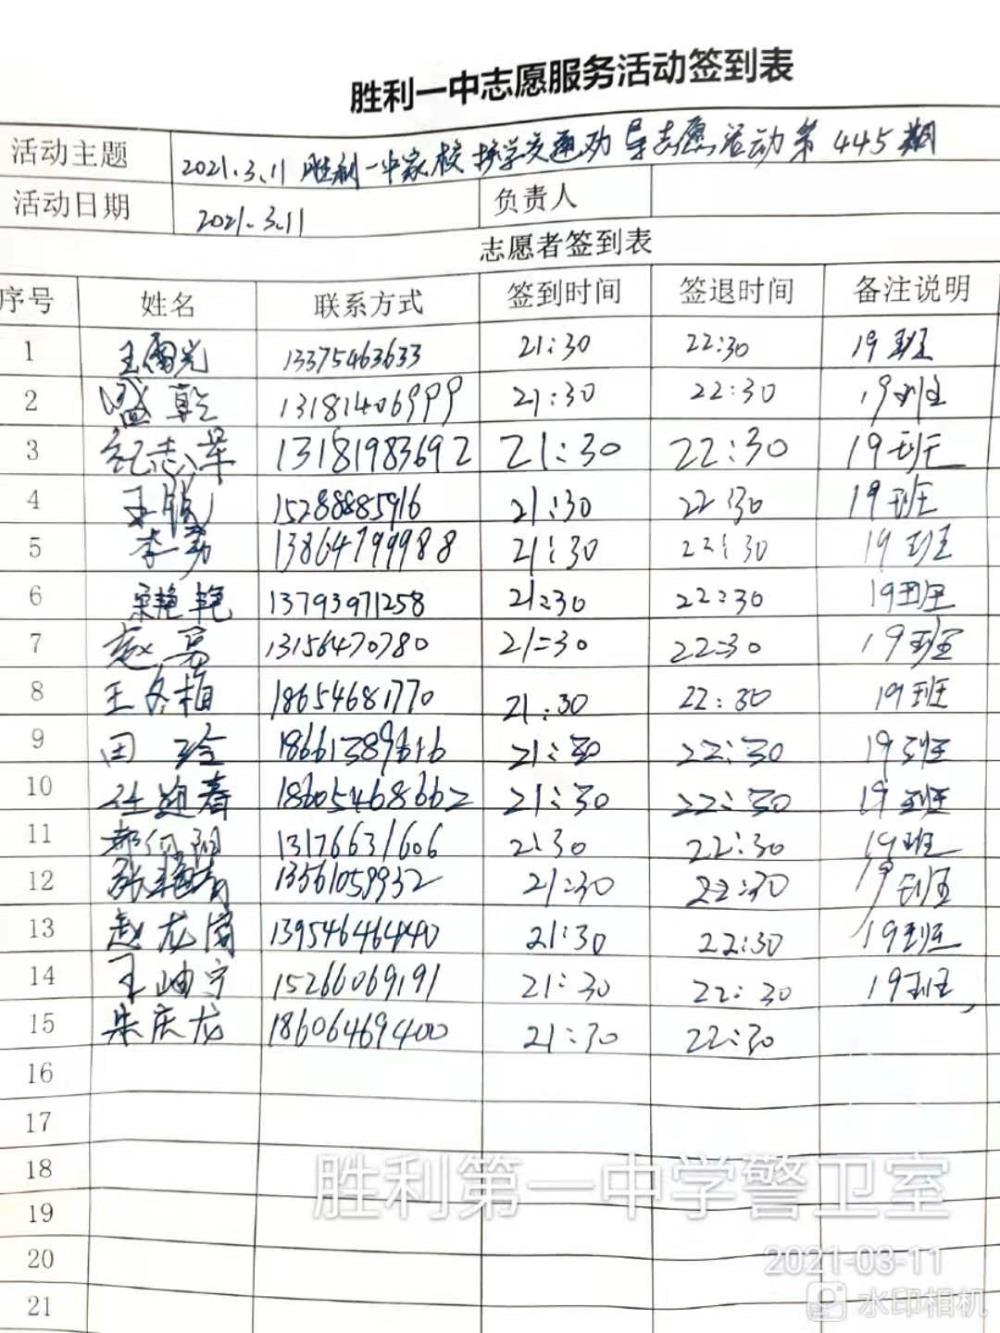 胜利一中志愿服务活动签到表
活动主题 2021.3.11 胜利一中家校护学交通劝导志愿活动第445期
活动日期 2021.3.11 负责人
志愿者签到表
序号 姓名 联系方式 签到时间 签退时间 备注说明
1 13375463633 21:30 22:30 19班
2 盛乾 13181406999 21:30 22:30 19班
3 纪志军 13181983692 21:30 22:30 19班
4 15288885916 21:30 22:30 19班
5 李勇 13864799988 21:30 22:30 19班
6 13793971258 21:30 22:30 19班
7 13156470780 21:30 22:30 19班
8 王冬梅 18654681770 21:30 22:30 19班
9 田玲 18661389616 21:30 22:30 19班
10 任迎春 18605468662 21:30 22:30 19班
11 13176631606 21:30 22:30 19班
12 13561059932 21:30 22:30 19班
13 13954646440 21:30 22:30 19班
14 王岫宇 15266069191 21:30 22:30 19班
15 朱庆龙 18606469400 21:30 22:30
16
17
18
胜利第一中学警卫室
19
20
2021-03-11
21
水印相机